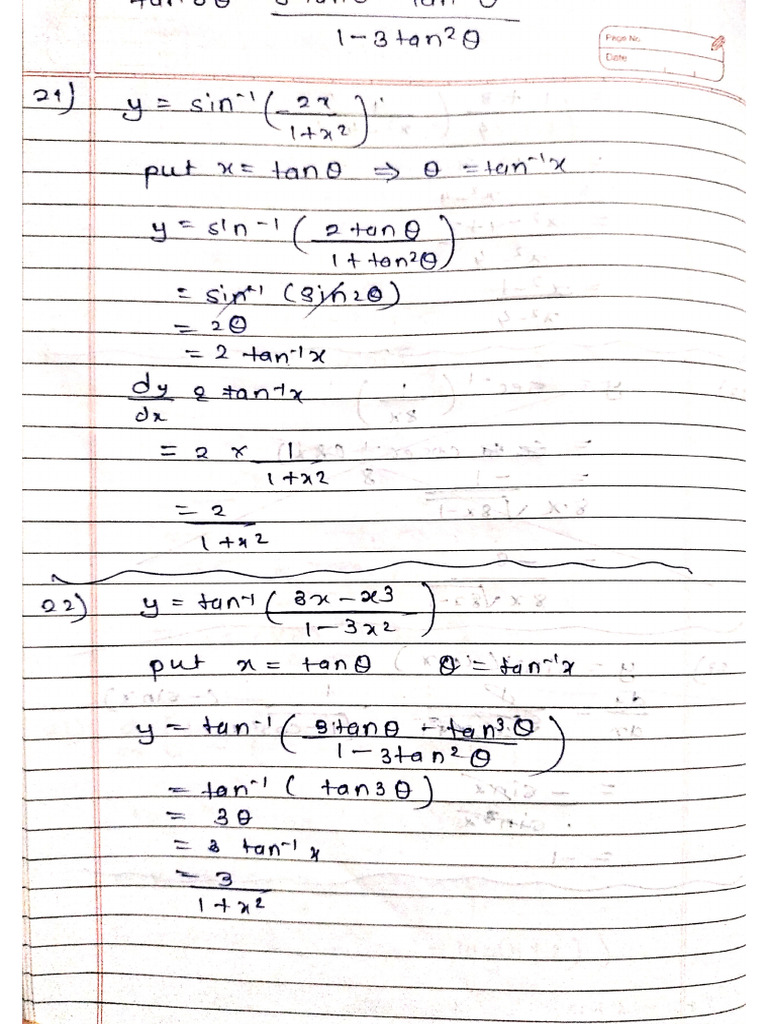 1 - 3 tan² θ
Page No.
Date
21) y = sin⁻¹ ( 2x / 1+x² )
put x = tan θ ⇒ θ = tan⁻¹x
y = sin⁻¹ ( 2 tan θ / 1 + tan² θ )
= sin⁻¹ (sin 2θ)
= 2θ
= 2 tan⁻¹x
dy/dx 2 tan⁻¹x
= 2 × 1 / 1+x²
= 2 / 1+x²
22) y = tan⁻¹ ( 3x - x3 / 1 - 3x² )
put x = tan θ θ = tan⁻¹x
y = tan⁻¹ ( 3tan θ - tan³ θ / 1 - 3tan² θ )
= tan⁻¹ ( tan 3 θ )
= 3θ
= 3 tan⁻¹ x
= 3 / 1 + x²